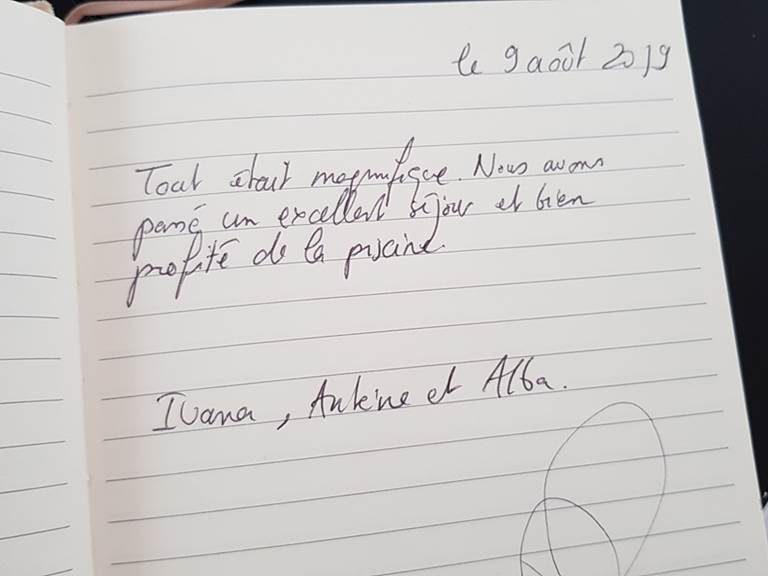 le 9 août 2019
Tout était magnifique. Nous avons
passé un excellent séjour et bien
profité de la piscine.
Ivana, Antoine et Alba.